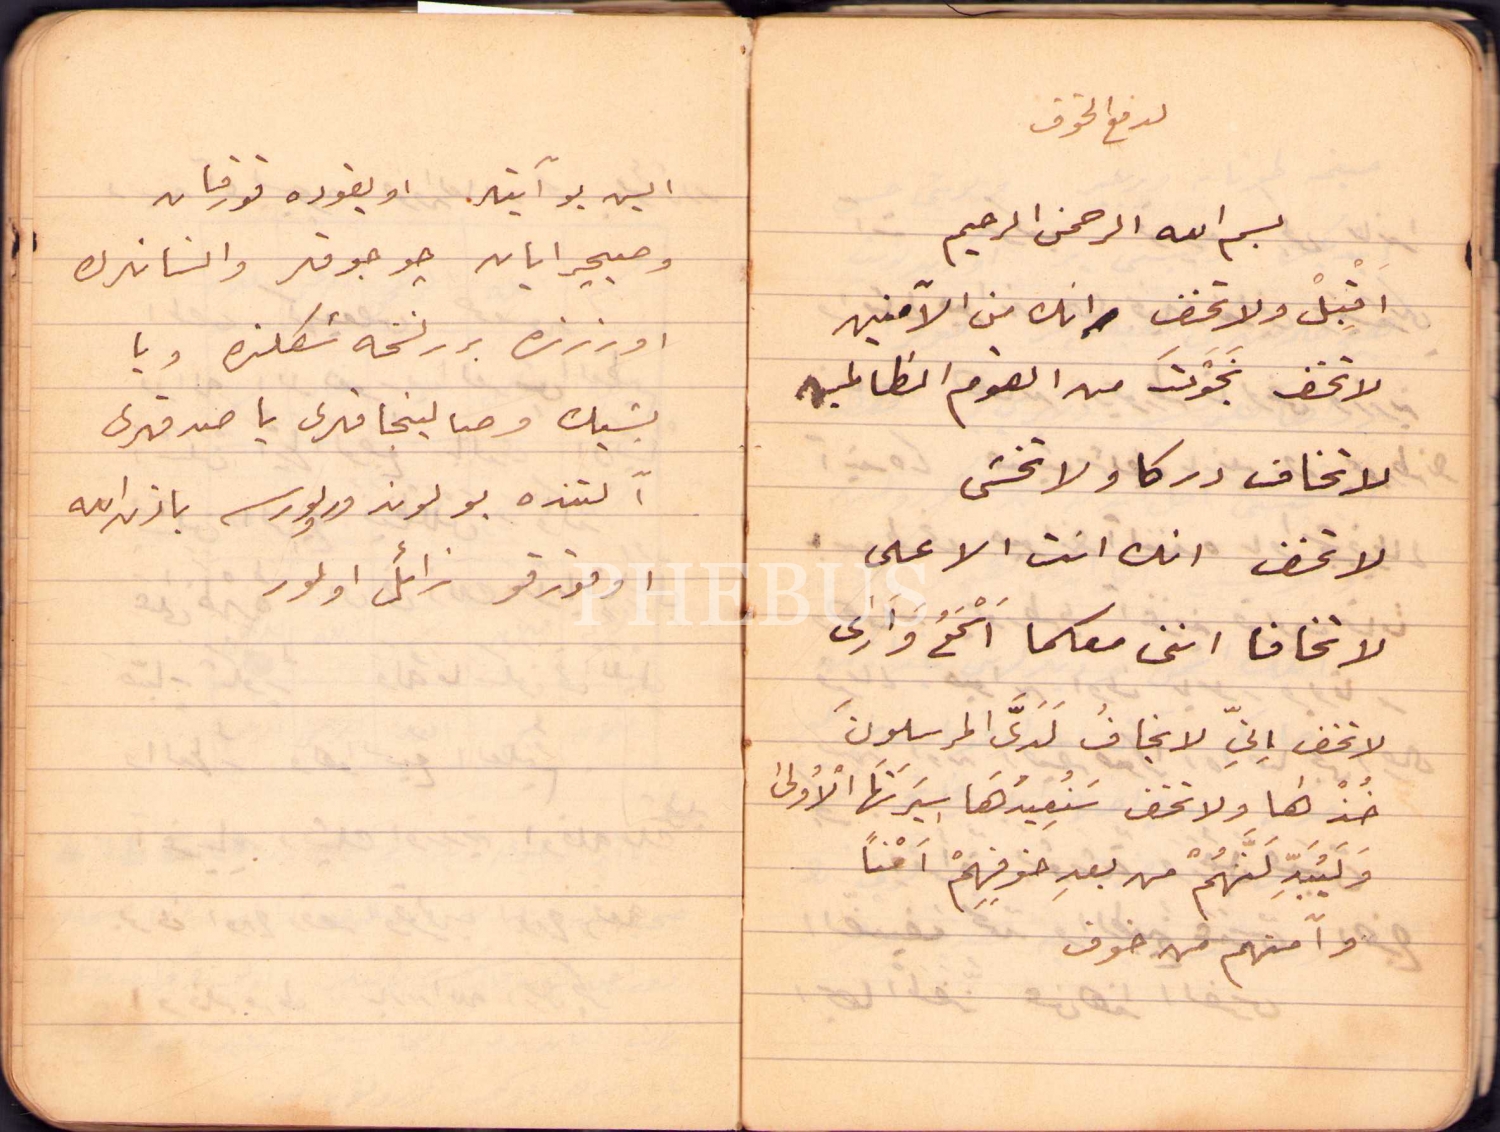 لدفع الخوف
بسم الله الرحمن الرحيم
اَقْبِلْ ولا تخف انك من الآمنين
لا تخف نَجَوْتَ من القوم الظالمين
لا تخاف دركا ولا تخشى
لا تخف انك انت الاعلى
لا تخافا اننى معكما اَسْمَعُ وَاَرَى
لا تخف اِنِّى لا يخافُ لَدَىَّ المرسلونَ
خُذْها ولا تخف سَنُعِيدُهَا سِيرَتَهَا الْاُولىٰ
وَلَيُبَدِّلَنَّهُمْ من بعدِ خوفِهِمْ اَمْنًا
وآمنهم من خوف
ايسه بو آيتلر اويقوده قورقان
وصيچرايان چوجوقلر وانسانلرك
اوزرنده بر نسخه شكلنده ويا
بشيك وصالينجاقلرى ياصدقلرى
آلتنده بولوندورولورسه باذن الله
او قورقو زائل اولور
PHEBUS